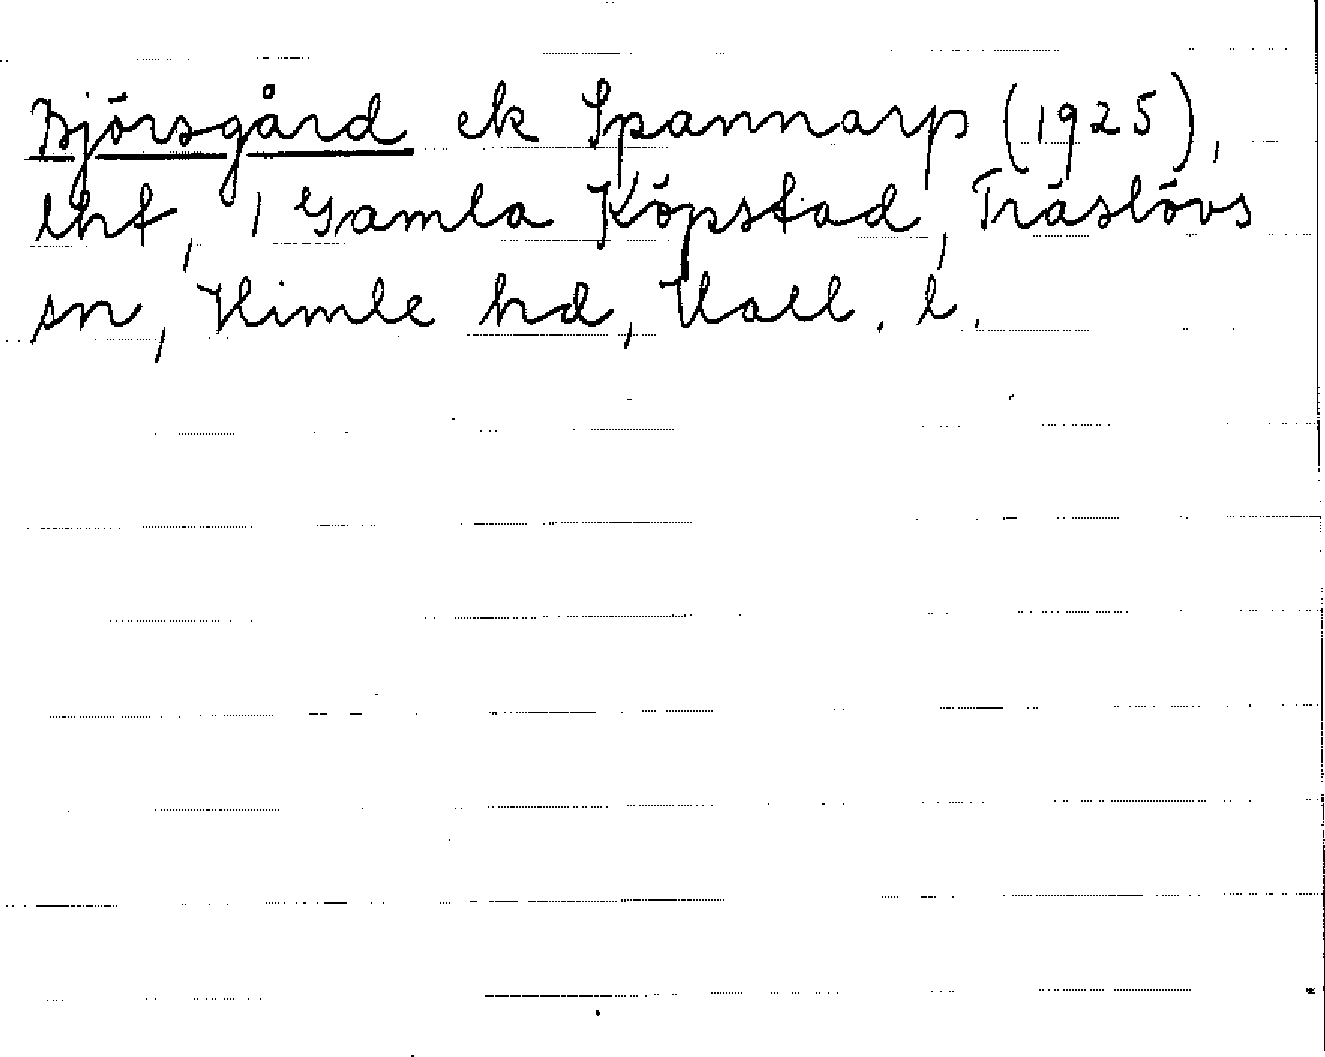 Björsgård ek Spannarp (1925),
lht, 1 Gamla Köpstad, Träslövs
sn, Himle hd, Hall. l.